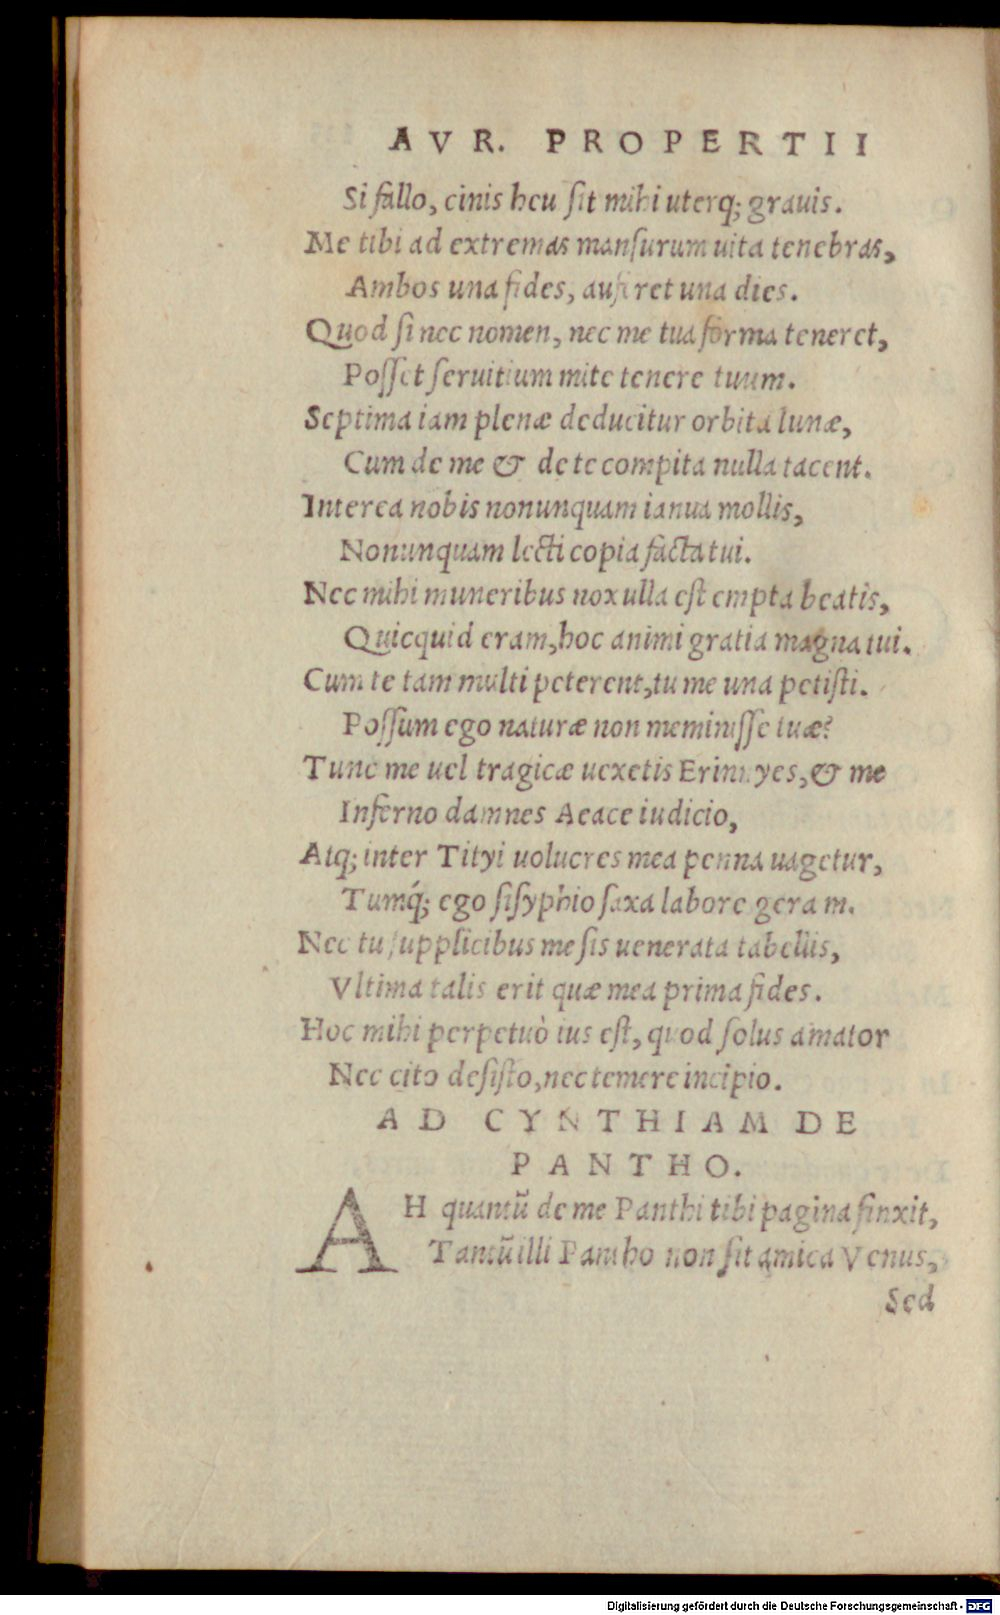 AVR. PROPERTII
Si fallo, cinis heu sit mihi uterq; grauis.
Me tibi ad extremas mansurum uita tenebras,
Ambos una fides, auferet una dies.
Quod si nec nomen, nec me tua forma teneret,
Posset seruitium mite tenere tuum.
Septima iam plenæ deducitur orbita lunæ,
Cum de me & de te compita nulla tacent.
Interea nobis nonunquam ianua mollis,
Nonunquam lecti copia facta tui.
Nec mihi muneribus nox ulla est empta beatis,
Quicquid eram, hoc animi gratia magna tui.
Cum te tam multi peterent, tu me una petisti.
Possum ego naturæ non meminisse tuæ?
Tunc me uel tragicæ uexetis Erinnyes, & me
Inferno damnes Aeace iudicio,
Atq; inter Tityi uolucres mea penna uagetur,
Tumq́; ego sisyphio saxa labore geram.
Nec tu supplicibus me sis uenerata tabellis,
Vltima talis erit quæ mea prima fides.
Hoc mihi perpetuò ius est, quod solus amator
Nec cito desisto, nec temere incipio.
AD CYNTHIAM DE
PANTHO.
AH quantũ de me Panthi tibi pagina finxit,
Tantũ illi Pantho non sit amica Venus,
Sed
Digitalisierung gefördert durch die Deutsche Forschungsgemeinschaft - DFG